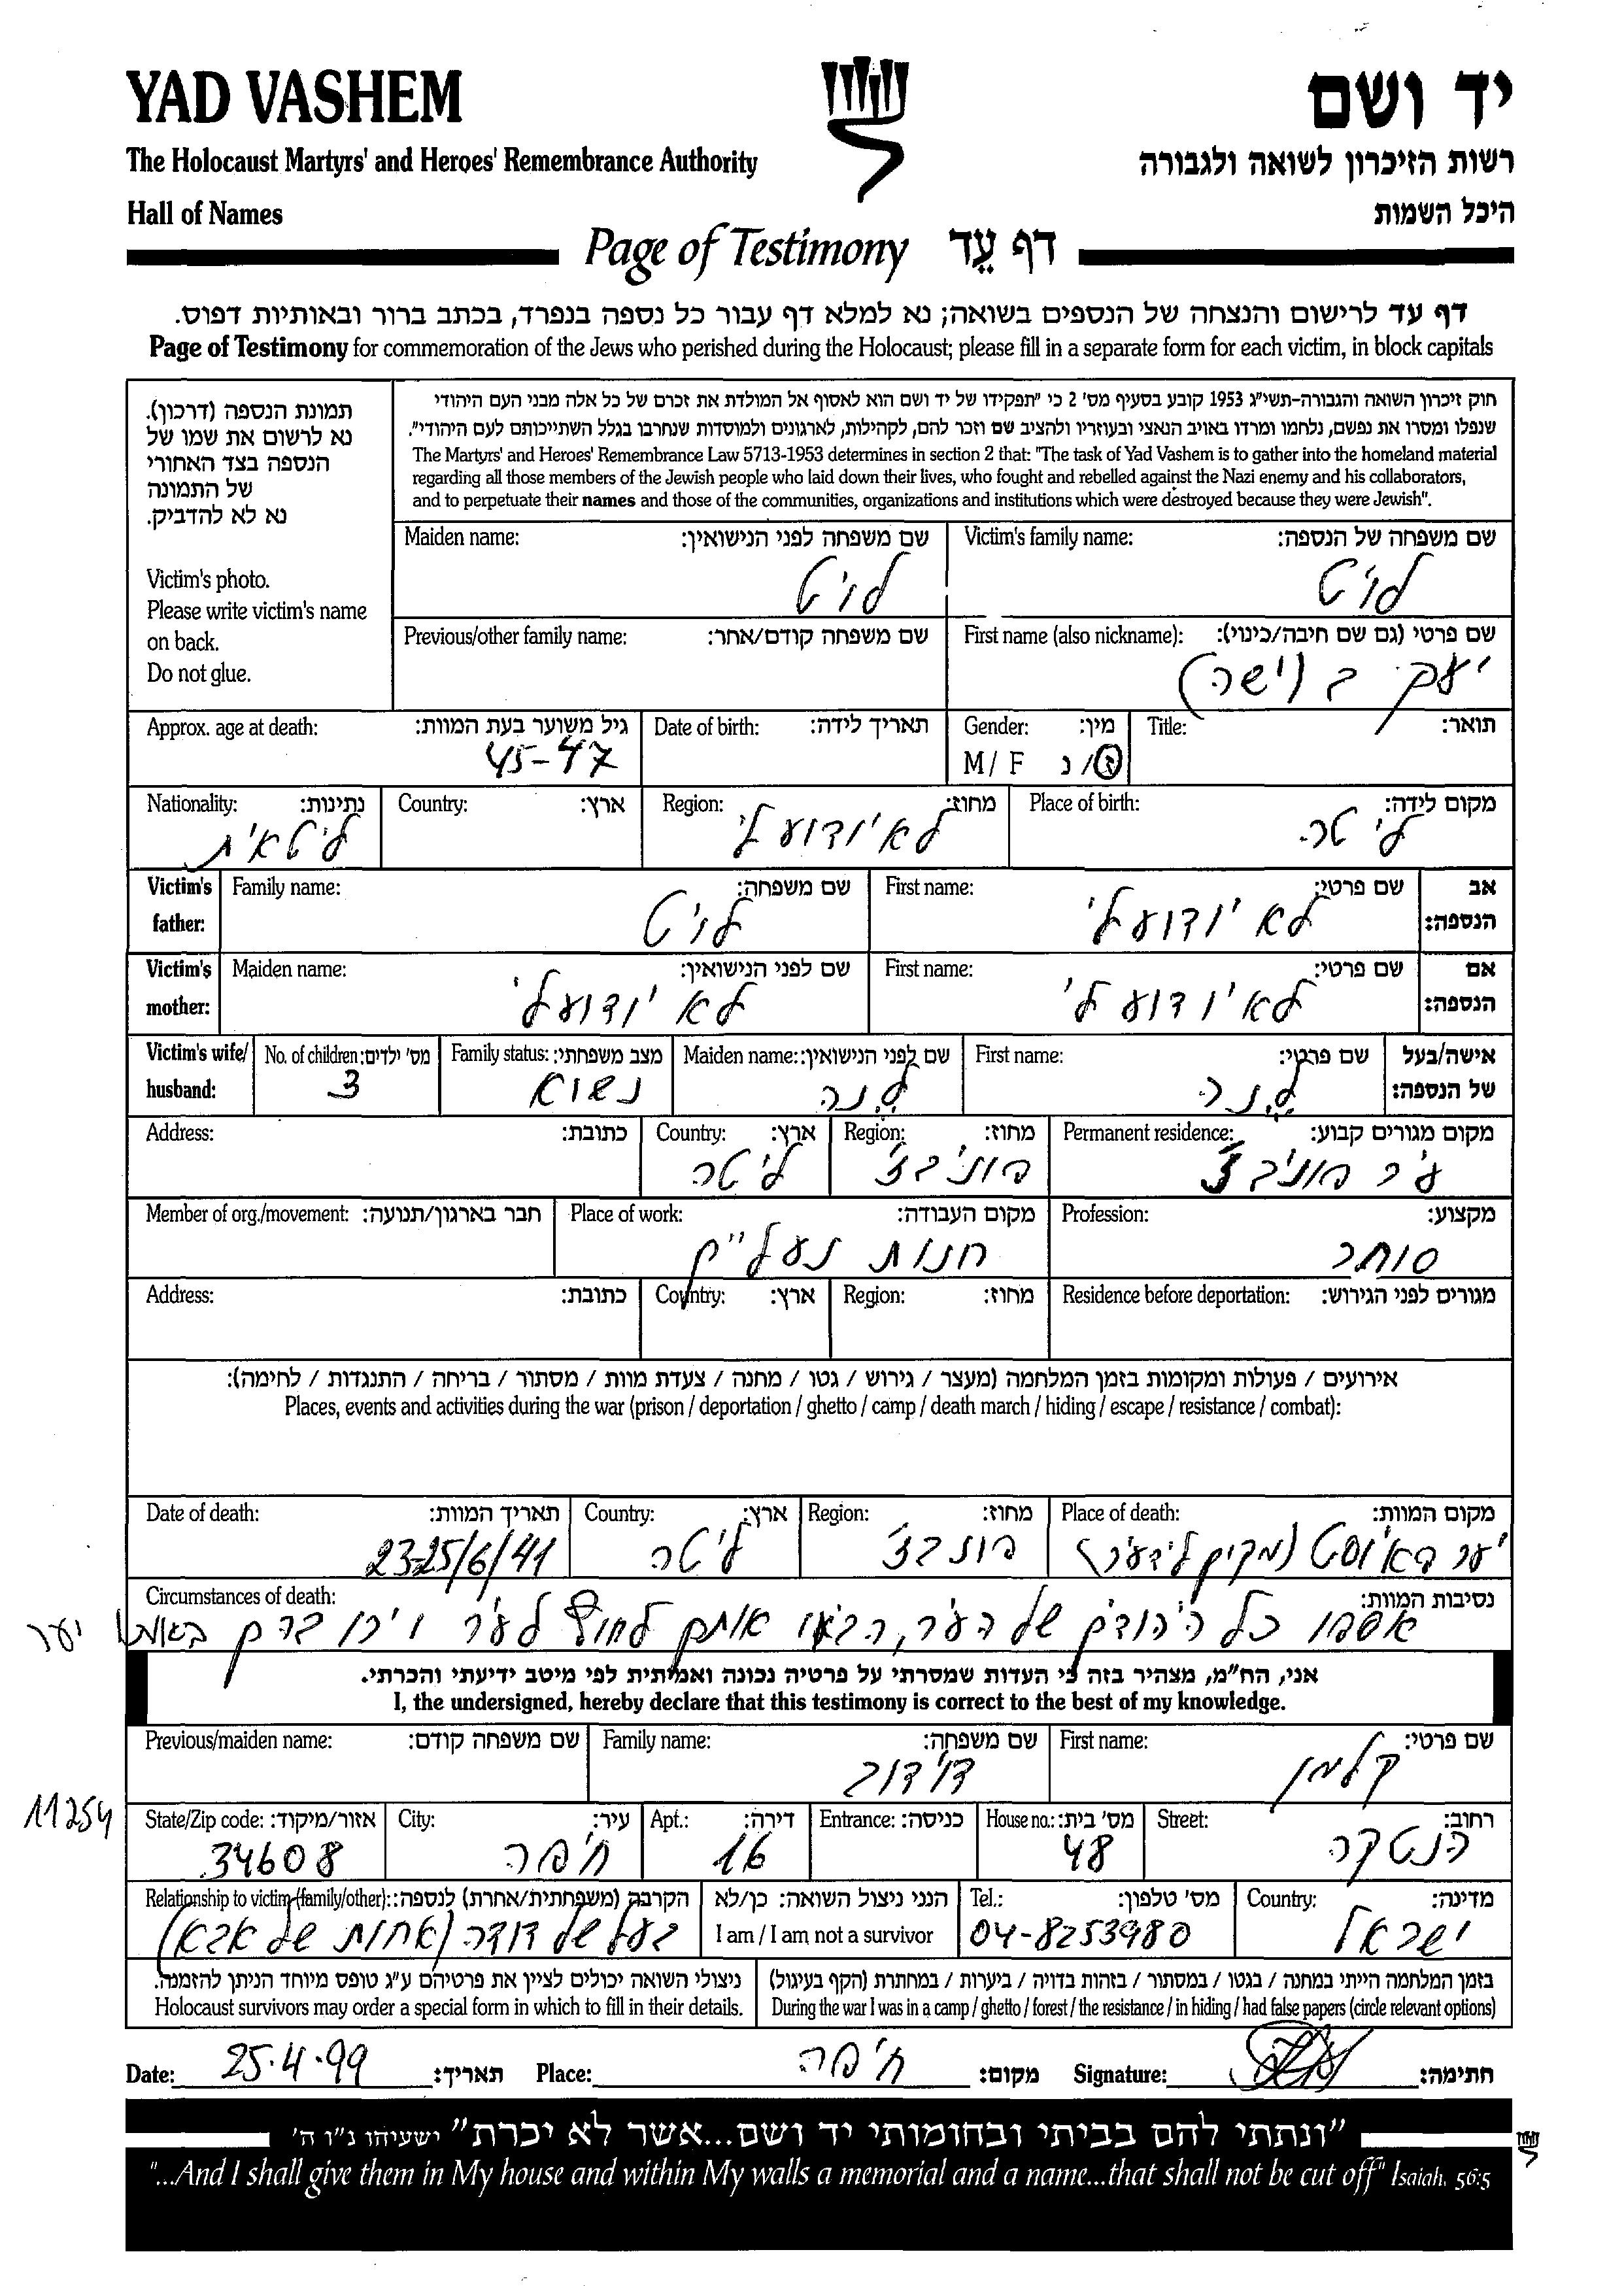 YAD VASHEM
יד ושם
The Holocaust Martyrs' and Heroes' Remembrance Authority
רשות הזיכרון לשואה ולגבורה
Hall of Names
היכל השמות
Page of Testimony דף עֵד
דף עד לרישום והנצחה של הנספים בשואה; נא למלא דף עבור כל נספה בנפרד, בכתב ברור ובאותיות דפוס.
Page of Testimony for commemoration of the Jews who perished during the Holocaust; please fill in a separate form for each victim, in block capitals
תמונת הנספה (דרכון).
נא לרשום את שמו של
הנספה בצד האחורי
של התמונה
נא לא להדביק.
Victim's photo.
Please write victim's name
on back.
Do not glue.
חוק זיכרון השואה והגבורה-תשי"ג 1953 קובע בסעיף מס' 2 כי "תפקידו של יד ושם הוא לאסוף אל המולדת את זכרם של כל אלה מבני העם היהודי
שנפלו ומסרו את נפשם, נלחמו ומרדו באויב הנאצי ובעוזריו ולהציב שם וזכר להם, לקהילות, לארגונים ולמוסדות שנחרבו בגלל השתייכותם לעם היהודי".
The Martyrs' and Heroes' Remembrance Law 5713-1953 determines in section 2 that: "The task of Yad Vashem is to gather into the homeland material
regarding all those members of the Jewish people who laid down their lives, who fought and rebelled against the Nazi enemy and his collaborators,
and to perpetuate their names and those of the communities, organizations and institutions which were destroyed because they were Jewish".
Victim's family name: שם משפחה של הנספה:
לויט
Maiden name: שם משפחה לפני הנישואין:
לויט
First name (also nickname): שם פרטי (גם שם חיבה/כינוי):
יעקב (ישה)
Previous/other family name: שם משפחה קודם/אחר:
Title: תואר:
Gender: מין:
M / F ז/נ
Date of birth: תאריך לידה:
Approx. age at death: גיל משוער בעת המוות:
45-47
Place of birth: מקום לידה:
ליטה
Region: מחוז:
לא ידוע לי
Country: ארץ:
Nationality: נתינות:
ליטאית
Victim's father: אב הנספה:
First name: שם פרטי:
לא ידוע לי
Family name: שם משפחה:
לויט
Victim's mother: אם הנספה:
First name: שם פרטי:
לא ידוע לי
Maiden name: שם לפני הנישואין:
לא ידוע לי
Victim's wife/ husband: אישה/בעל של הנספה:
First name: שם פרטי:
לנה
Maiden name: שם לפני הנישואין:
לנה
Family status: מצב משפחתי:
נשוא
No. of children: מס' ילדים:
3
Permanent residence: מקום מגורים קבוע:
עיר פוניבז'
Region: מחוז:
פוניבז'
Country: ארץ:
ליטה
Address: כתובת:
Profession: מקצוע:
סוחר
Place of work: מקום העבודה:
חנות נעליים
Member of org./movement: חבר בארגון/תנועה:
Residence before deportation: מגורים לפני הגירוש:
Region: מחוז:
Country: ארץ:
Address: כתובת:
אירועים / פעולות ומקומות בזמן המלחמה (מעצר / גירוש / גטו / מחנה / צעדת מוות / מסתור / בריחה / התנגדות / לחימה):
Places, events and activities during the war (prison / deportation / ghetto / camp / death march / hiding / escape / resistance / combat):
Place of death: מקום המוות:
יער
Region: מחוז:
פונבז'
Country: ארץ:
ליטה
Date of death: תאריך המוות:
23-25/6/41
Circumstances of death: נסיבות המוות:
אספו כל היהודים של העיר, הביאו אותם לחוץ לעיר וירו בהם באותו יער
אני, הח"מ, מצהיר בזה כי העדות שמסרתי על פרטיה נכונה ואמיתית לפי מיטב ידיעתי והכרתי.
I, the undersigned, hereby declare that this testimony is correct to the best of my knowledge.
First name: שם פרטי:
קלמן
Family name: שם משפחה:
דוידוב
Previous/maiden name: שם משפחה קודם:
11254
Street: רחוב:
הנטקה
House no.: מס' בית:
48
Entrance: כניסה:
Apt.: דירה:
16
City: עיר:
חיפה
State/Zip code: אזור/מיקוד:
34608
Country: מדינה:
ישראל
Tel.: מס' טלפון:
04-8253980
הנני ניצול השואה: כן/לא
I am / I am not a survivor
Relationship to victim (family/other): הקרבה (משפחתית/אחרת) לנספה:
בעל של דודה (אחות של אבא)
בזמן המלחמה הייתי במחנה / בגטו / במסתור / בזהות בדויה / ביערות / במחתרת (הקף בעיגול)
During the war I was in a camp / ghetto / forest / the resistance / in hiding / had false papers (circle relevant options)
ניצולי השואה יכולים לציין את פרטיהם ע"ג טופס מיוחד הניתן להזמנה.
Holocaust survivors may order a special form in which to fill in their details.
Date: 25.4.99 תאריך: Place: חיפה מקום: Signature: חתימה:
"ונתתי להם בביתי ובחומותי יד ושם...אשר לא יכרת" ישעיהו נ"ו ה'
"...And I shall give them in My house and within My walls a memorial and a name...that shall not be cut off" Isaiah. 56:5